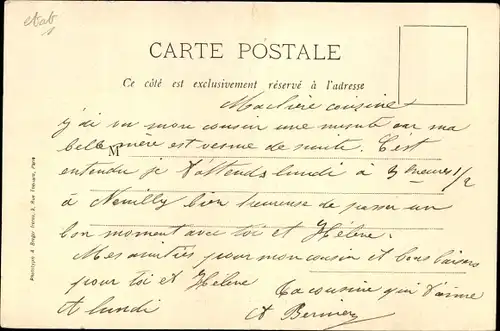 etab
CARTE POSTALE
Ce côté est exclusivement réservé à l'adresse
Ma chère cousine
j'ai vu mon cousin une minute car ma
belle mère est venue de suite. C'est
M
entendu je t'attends lundi à 3 heures 1/2
à Neuilly bien heureuse de passer un
bon moment avec toi et Hélène.
Mes amitiés pour mon cousin et bons baisers
pour toi et Hélène
Ta cousine qui t'aime
et lundi
Phototypie A. Breger frères, 9, Rue Thénard, Paris